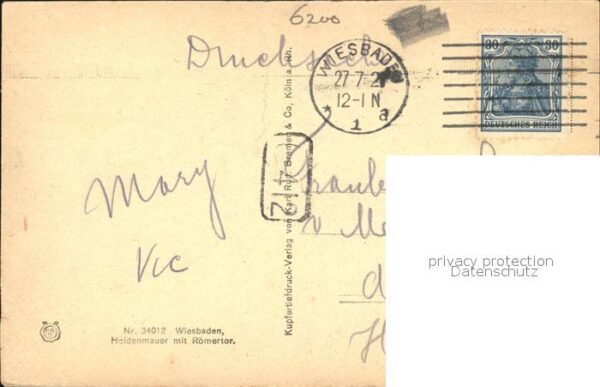 6200
Drucksache
WIESBADEN
27.7.2
12-1 N
1 a
30 30
DEUTSCHES REICH
Kupfertiefdruck-Verlag von Karl Rud. Bremer & Co, Köln a. Rh.
412
Mary
Vic
v.
privacy protection
Datenschutz
Nr. 34012 Wiesbaden,
Heidenmauer mit Römertor.